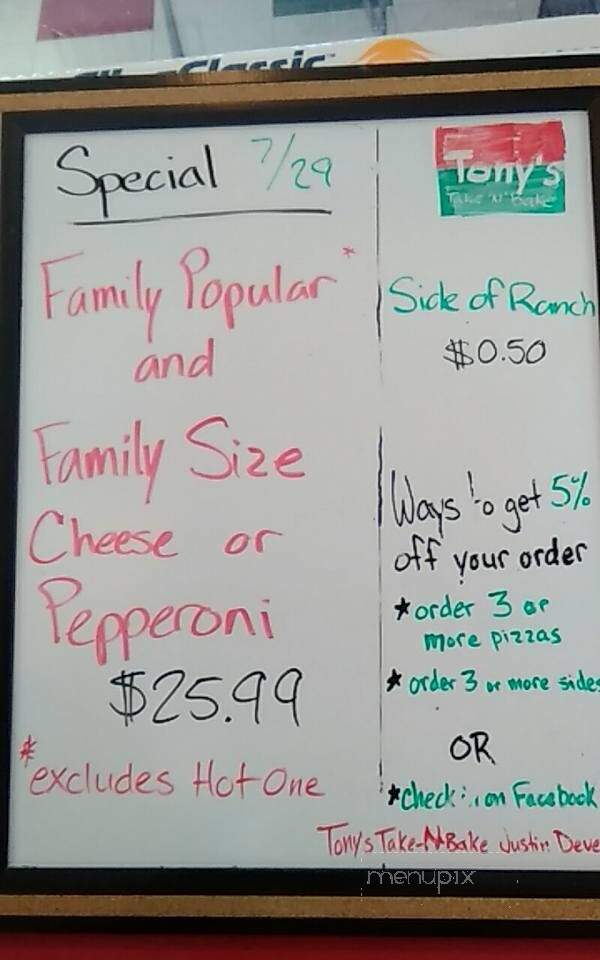 Classic
Special 7/29
Family Popular*
and
Family Size
Cheese or
Pepperoni
$25.99
*excludes Hot One
Tony's
Take 'N' Bake
Side of Ranch
$0.50
Ways to get 5%
off your order
*order 3 or
more pizzas
*order 3 or more sides
OR
*Check in on Facebook
Tony's Take-N-Bake Justin Deve
menupix